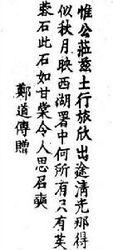 惟公莅茲土行旅欣出途清光那得
似秋月映西湖署中何所有只有英
石此石如甘棠令人思召奭
鄭道傳贈